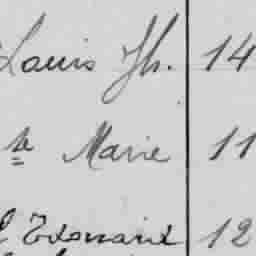 Louis Jh. 14
te Marie 11
Edouard 12